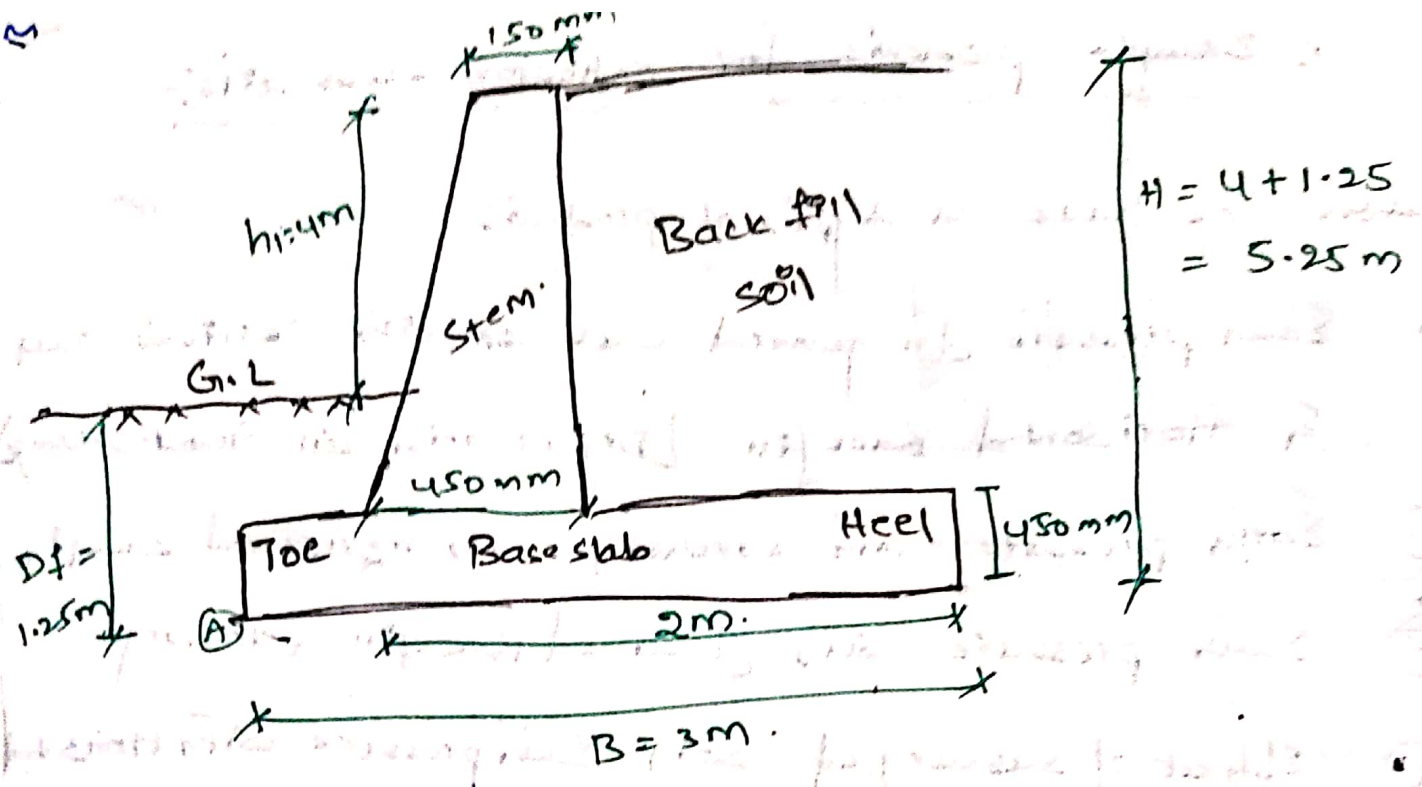 150 mm
h1=4m
Back fill
soil
H = 4+1.25
= 5.25 m
Stem.
G.L
450mm
Toe
Base slab
Heel
450mm
Df =
1.25m
A
2m.
B = 3m.